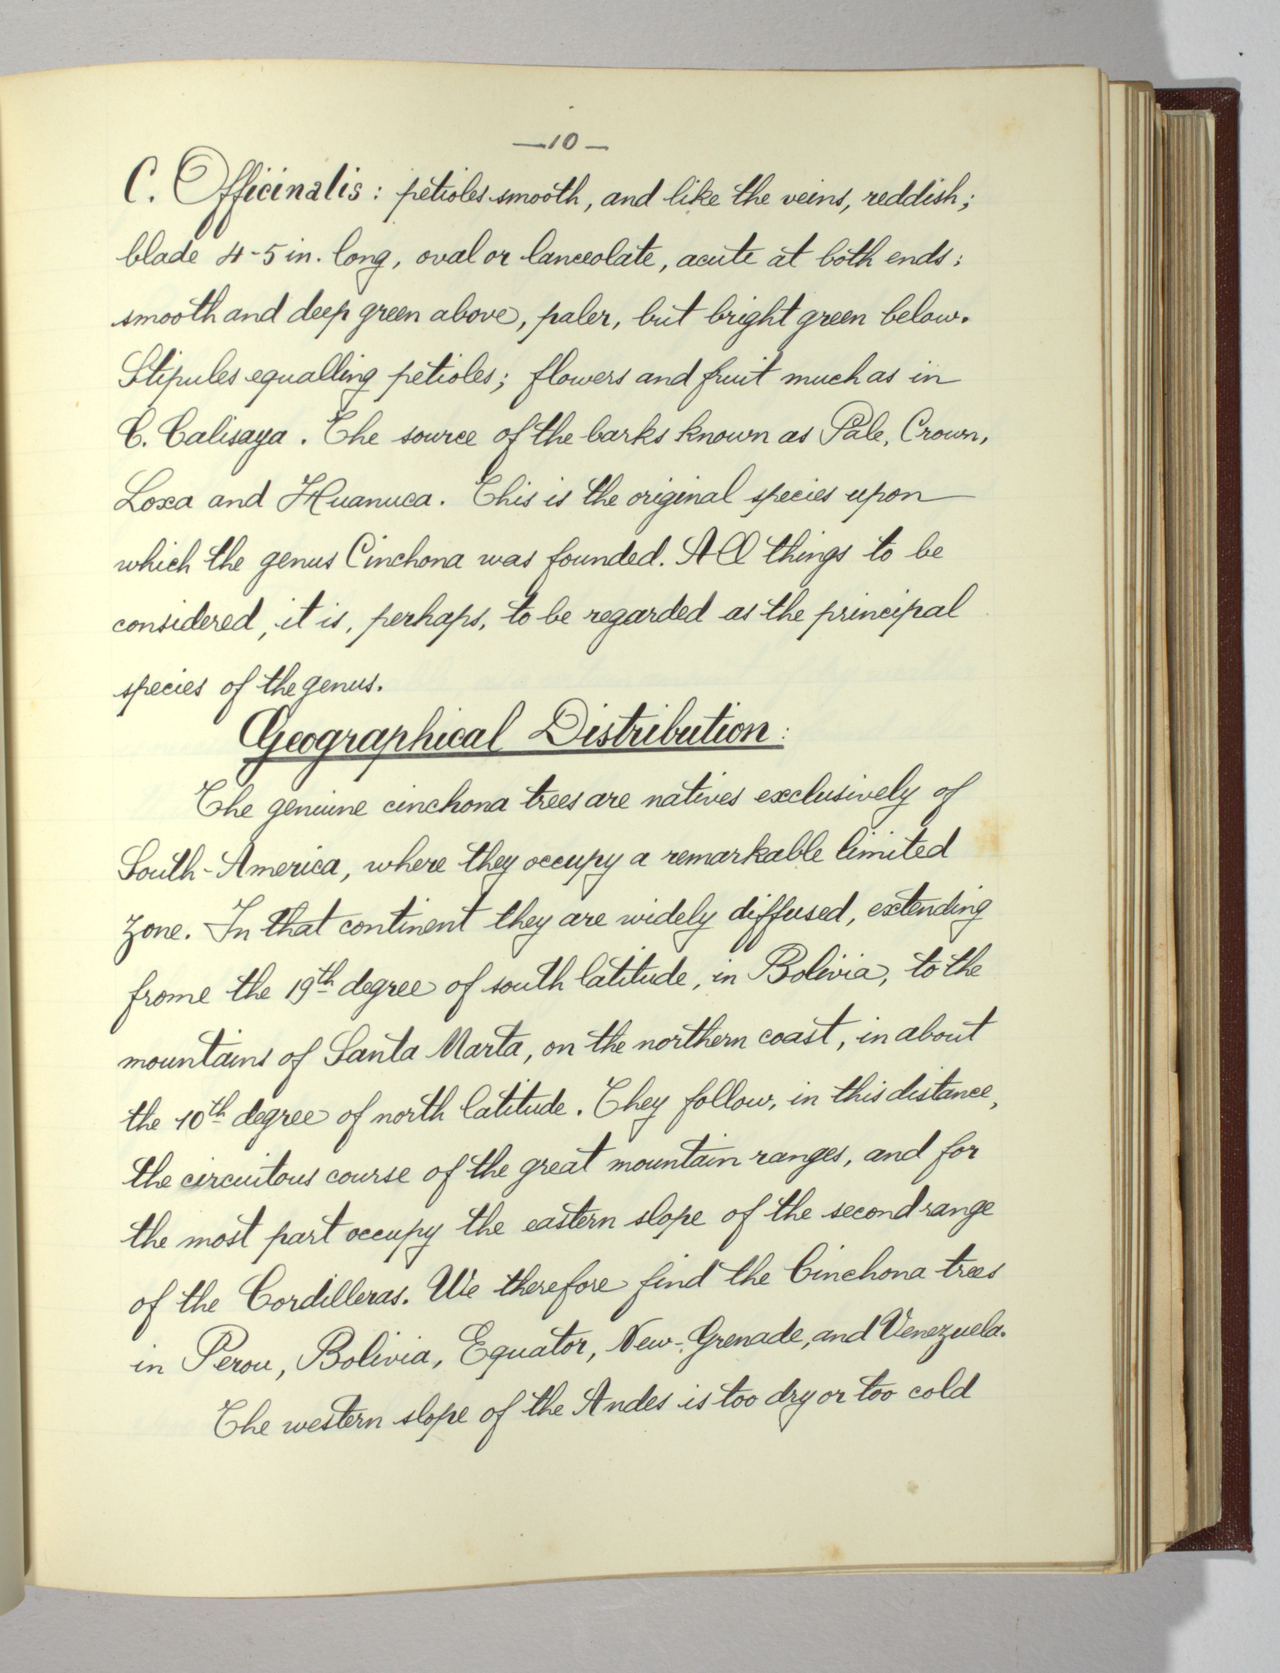 —10—
C. Officinalis: petioles smooth, and like the veins, reddish;
blade 4-5 in. long, oval or lanceolate, acute at both ends;
smooth and deep green above, paler, but bright green below.
Stipules equalling petioles; flowers and fruit much as in
C. Calisaya. The source of the barks known as Pale, Crown,
Loxa and Huanuca. This is the original species upon
which the genus Cinchona was founded. All things to be
considered, it is, perhaps, to be regarded as the principal
species of the genus.
Geographical Distribution:
The genuine cinchona trees are natives exclusively of
South-America, where they occupy a remarkable limited
zone. In that continent they are widely diffused, extending
frome the 19th degree of south latitude, in Bolivia, to the
mountains of Santa Marta, on the northern coast, in about
the 10th degree of north latitude. They follow, in this distance,
the circuitous course of the great mountain ranges, and for
the most part occupy the eastern slope of the second range
of the Cordilleras. We therefore find the Cinchona trees
in Perou, Bolivia, Equator, New-Grenade, and Venezuela.
The western slope of the Andes is too dry or too cold